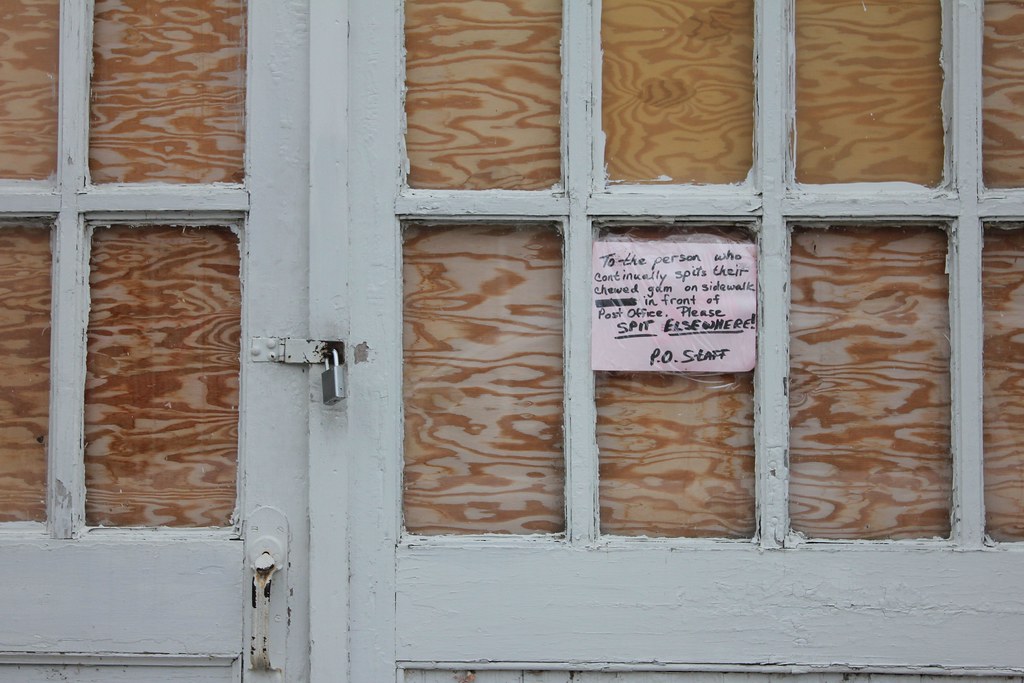 To the person who
continually spits their
chewed gum on sidewalk
in front of
Post Office. Please
SPIT ELSEWHERE!
P.O. STAFF